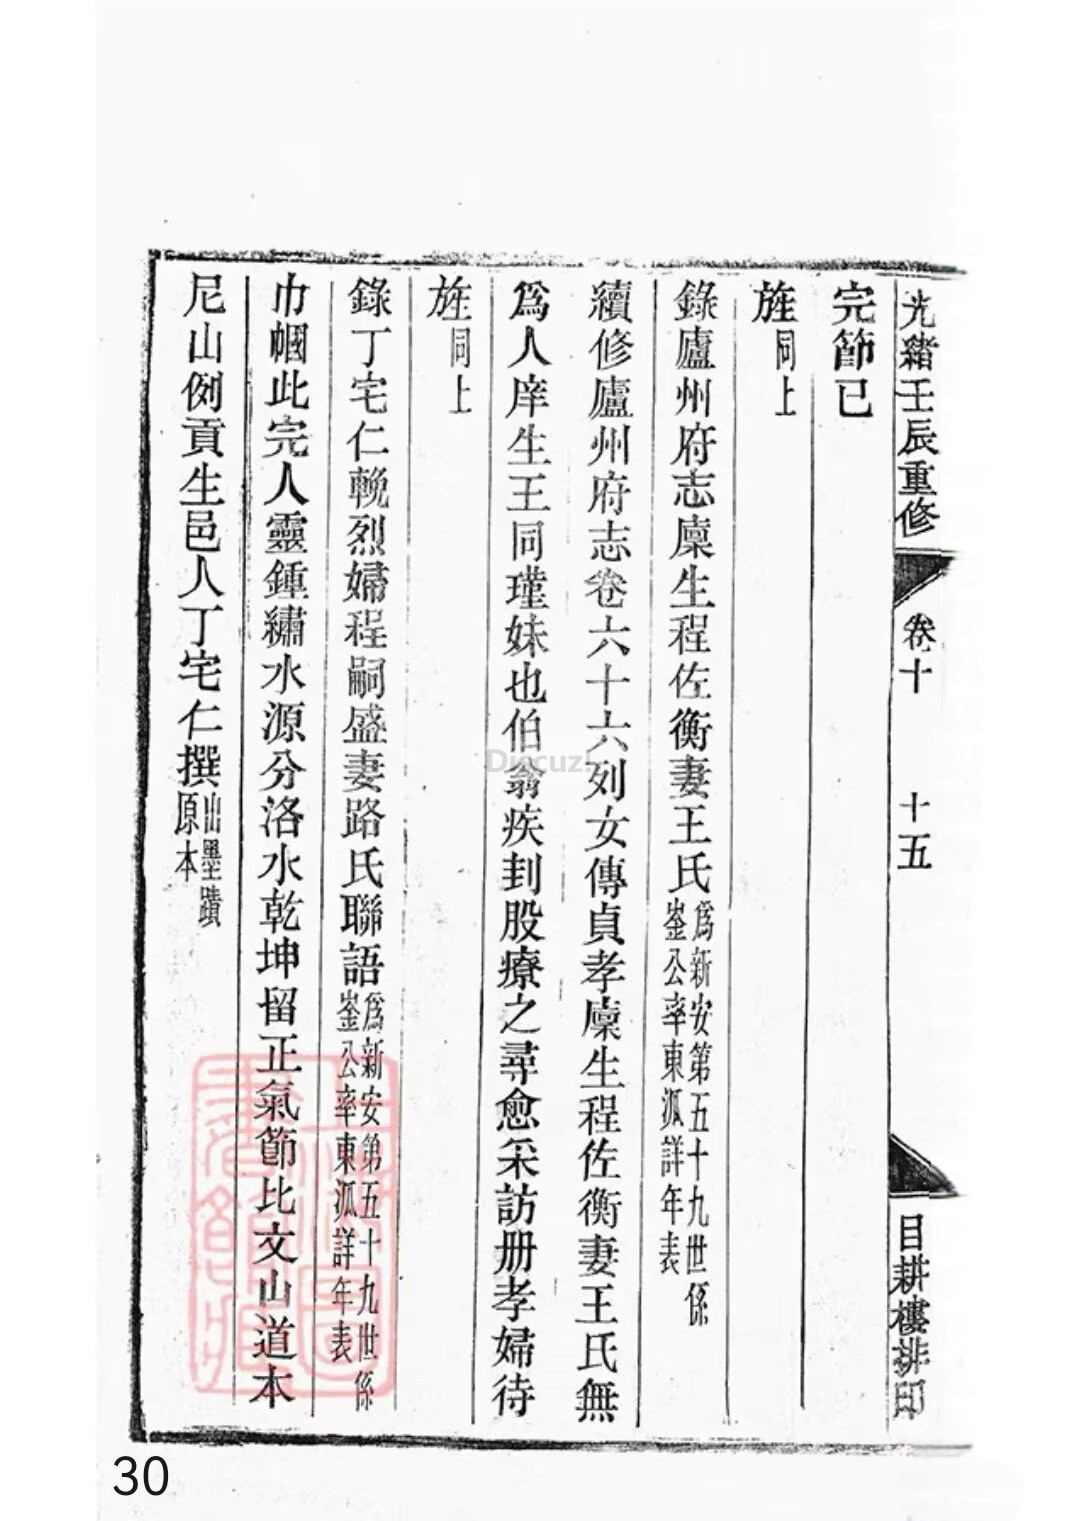 光緒壬辰重修 卷十 十五 目耕樓排印
完節已
旌同上
錄廬州府志廩生程佐衡妻王氏爲新安第五十九世係崟公率東派詳年表
續修廬州府志卷六十六列女傳貞孝廩生程佐衡妻王氏無
爲人庠生王同瑾妹也伯翁疾刲股療之尋愈采訪册孝婦待
旌同上
錄丁宅仁輓烈婦程嗣盛妻路氏聯語爲新安第五十九世係崟公率東派詳年表
巾幗此完人靈鍾繡水源分洛水乾坤留正氣節比文山道本
尼山例貢生邑人丁宅仁撰山墨蹟原本
Discuz!
30